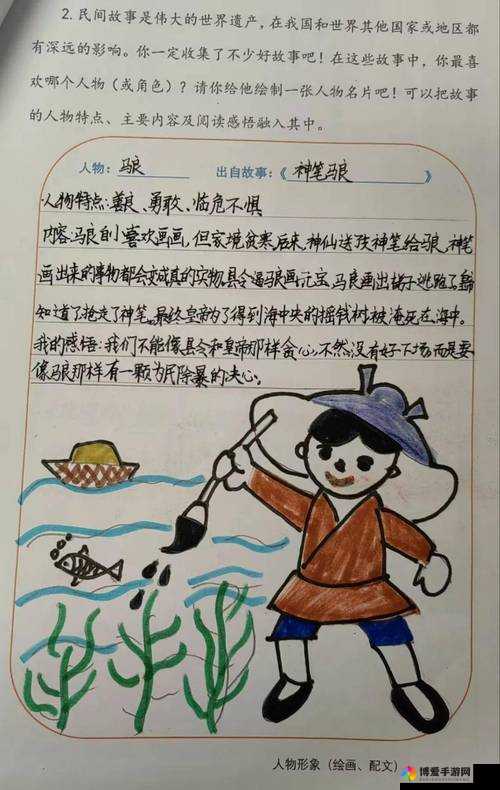 2. 民间故事是伟大的世界遗产,在我国和世界其他国家或地区都
有深远的影响。你一定收集了不少好故事吧!在这些故事中,你最喜
欢哪个人物(或角色)?请你给他绘制一张人物名片吧!可以把故事
的人物特点、主要内容及阅读感悟融入其中。
人物: 马良 出自故事:《 神笔马良 》
人物特点:善良、勇敢、临危不惧
内容:马良自小喜欢画画,但家境贫寒,后来,神仙送 神笔给马良,神笔
画出来的事物都会变成真的实物,县令逼马良画元宝,马良画出梯子逃跑了,皇帝
知道了抢走了神笔,最终皇帝为了得到海中央的摇钱树,被淹死在海中。
我的感悟:我们不能像县令和皇帝那样贪心,不然没有好下场,而是要
像马良那样有一颗为民除暴的决心。
人物形象(绘画、配文)
博爱手游网